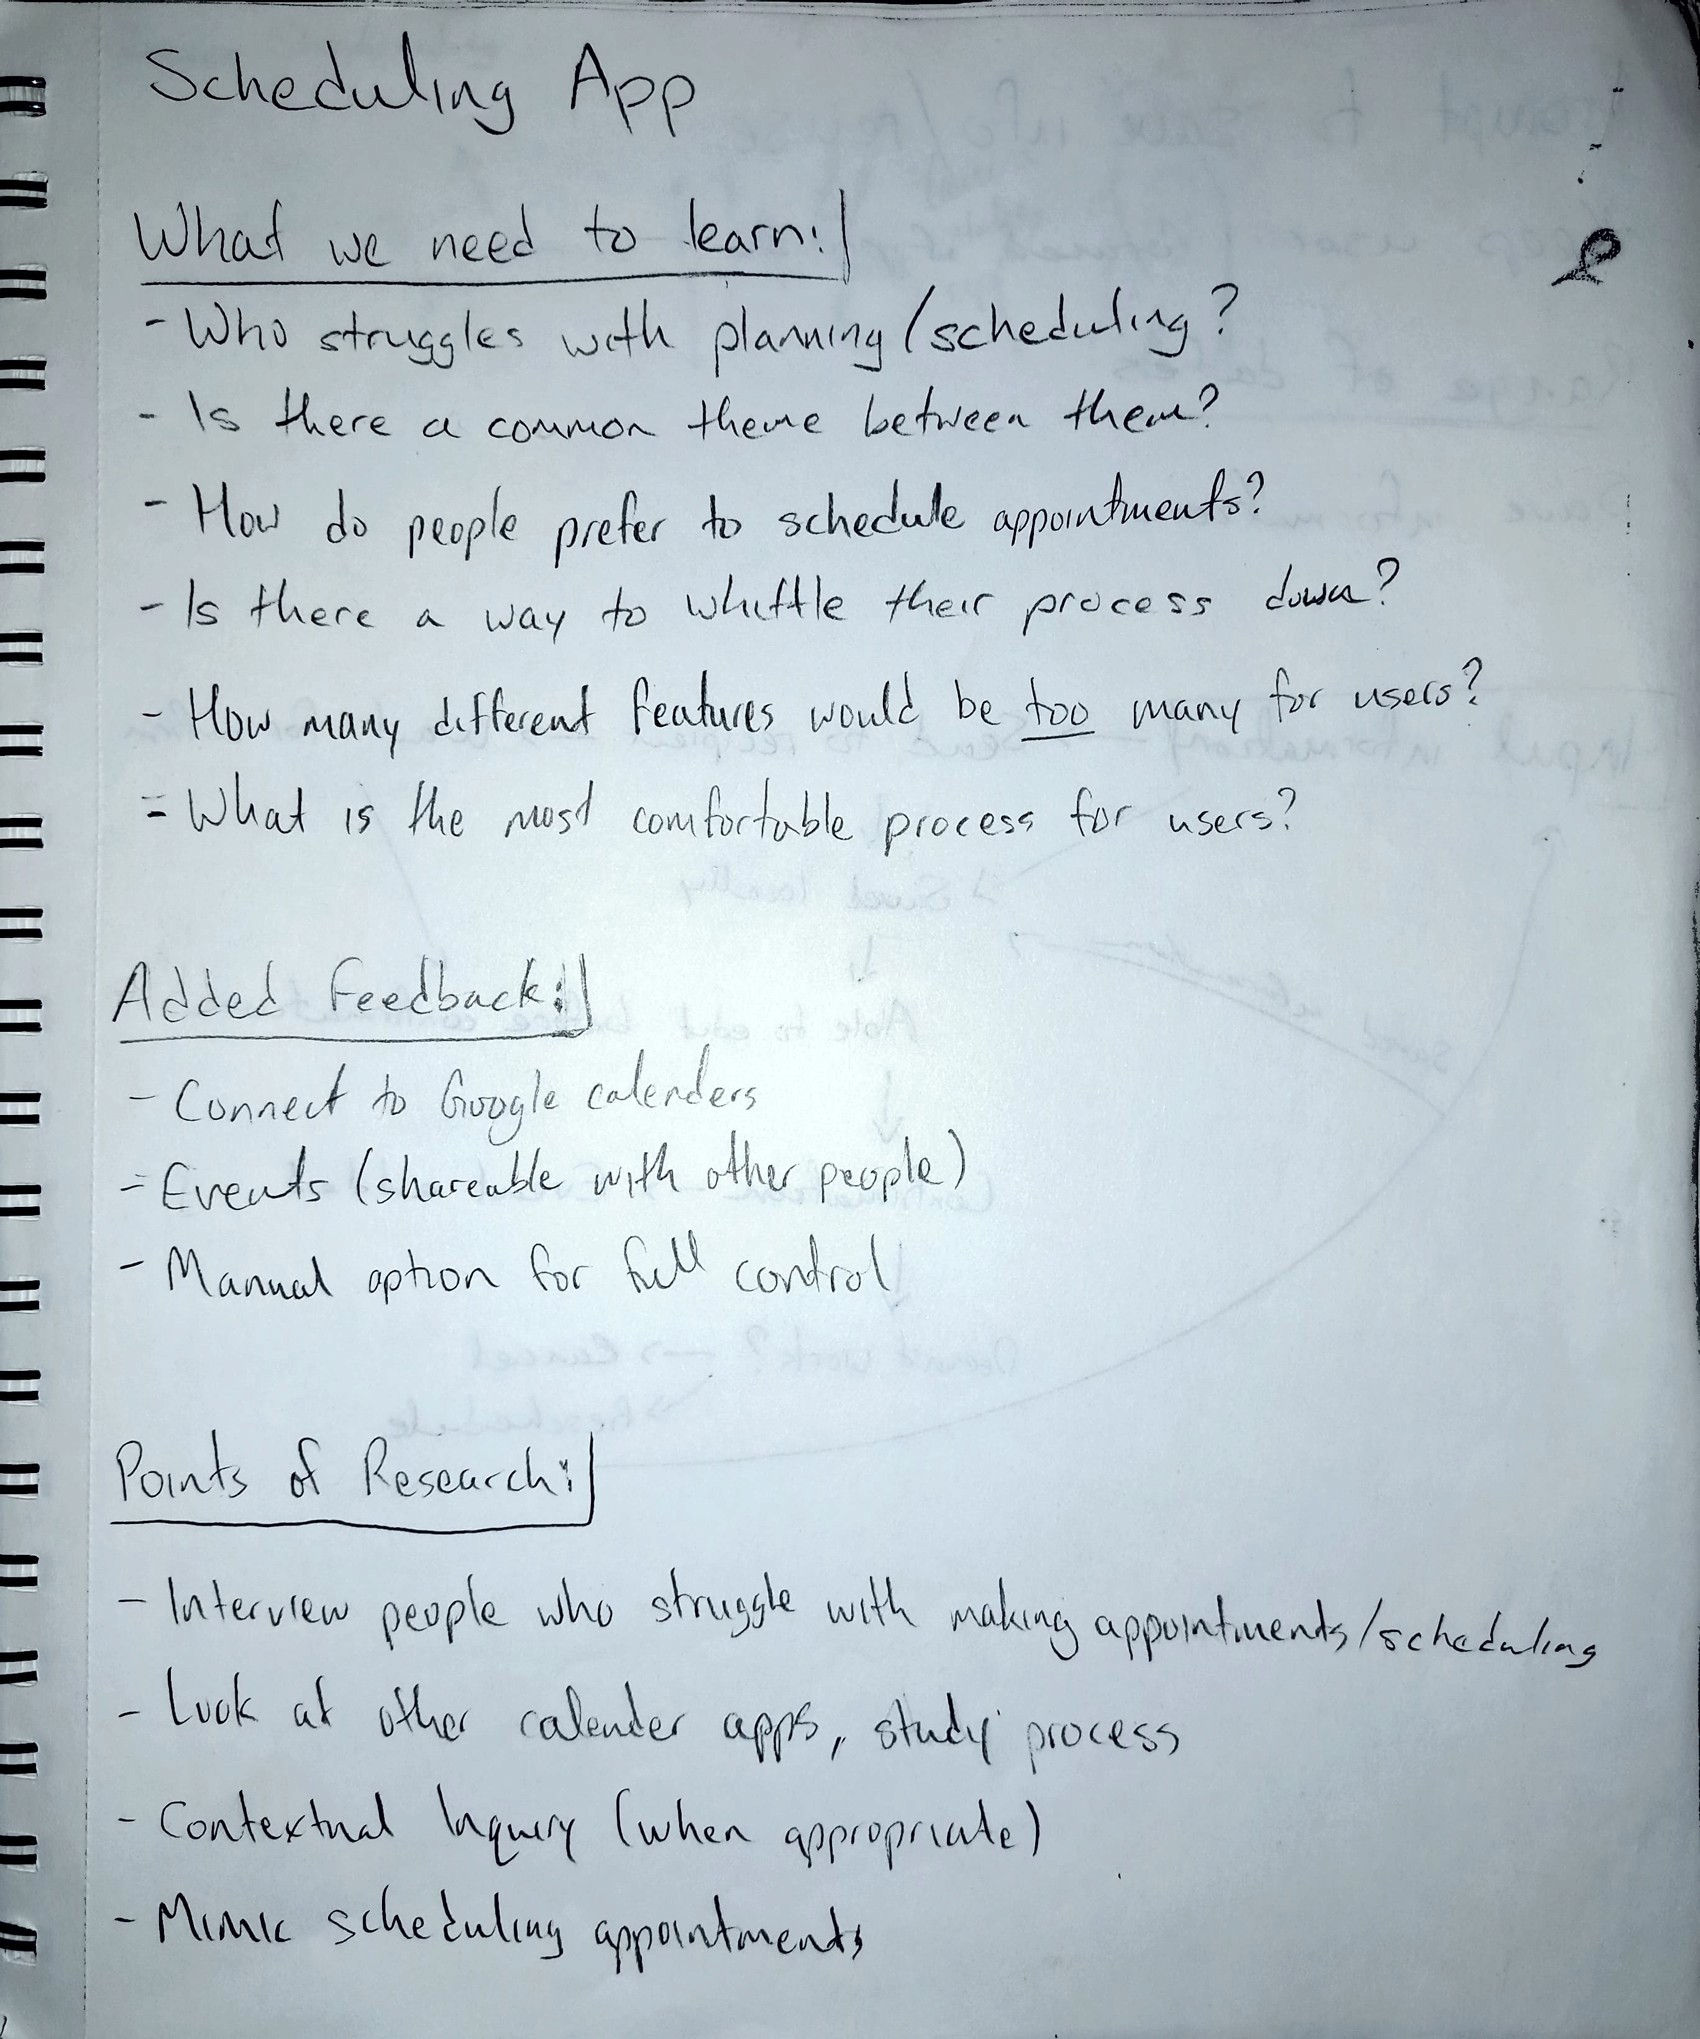 Scheduling App
What we need to learn:
- Who struggles with planning/scheduling?
- Is there a common theme between them?
- How do people prefer to schedule appointments?
- Is there a way to whittle their process down?
- How many different features would be too many for users?
- What is the most comfortable process for users?
Added Feedback:
- Connect to Google calenders
- Events (shareable with other people)
- Manual option for full control
Points of Research:
- Interview people who struggle with making appointments/scheduling
- Look at other calender apps, study process
- Contextual Inquiry (when appropriate)
- Mimic scheduling appointments